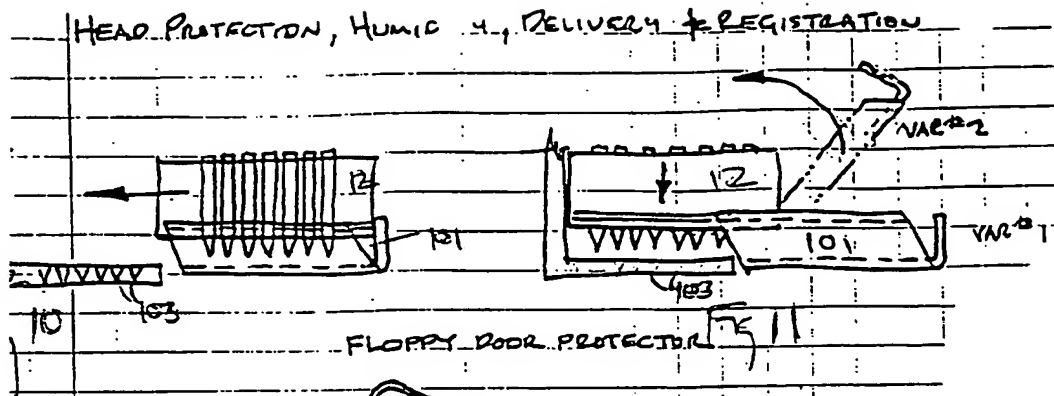 HEAD PROTECTION, HUMID 4, DELIVERY & REGISTRATION
VAR#2
12 12
101 101 VAR#1
103 103
10
FLOPPY DOOR PROTECTOR 11